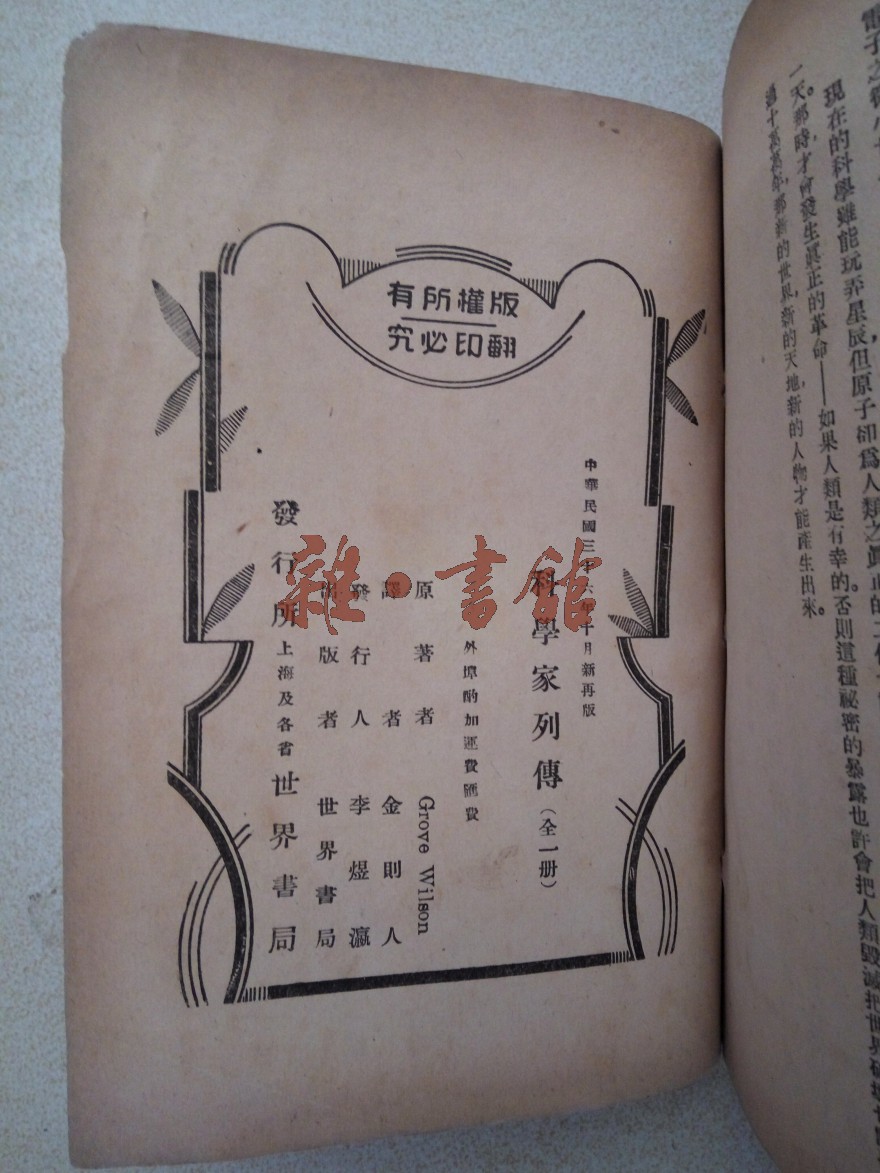 版權所有
翻印必究
中華民國三十六年十月新再版
科學家列傳（全一册）
外埠酌加運費匯費
原著者 Grove Wilson
譯者 金則人
發行人 李煜瀛
出版者 世界書局
發行所 上海及各省 世界書局
雜·書館
現在的科學雖能玩弄星辰但原子卻爲人類之眞正的
一天。那時才會發生眞正的革命——如果人類是有幸的。否則這種秘密的暴露也許會把人類毀滅把世界
過十萬萬年，那新的世界，新的天地，新的人物才能產生出來。